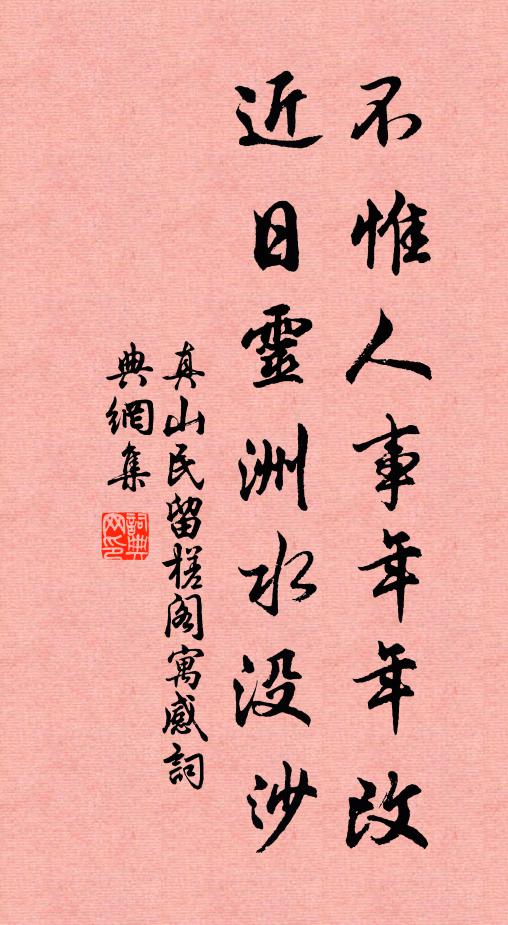 不惟人事年年改
近日靈洲水没沙
真山民留槎阁寓感詞
典網集
詞典
网印